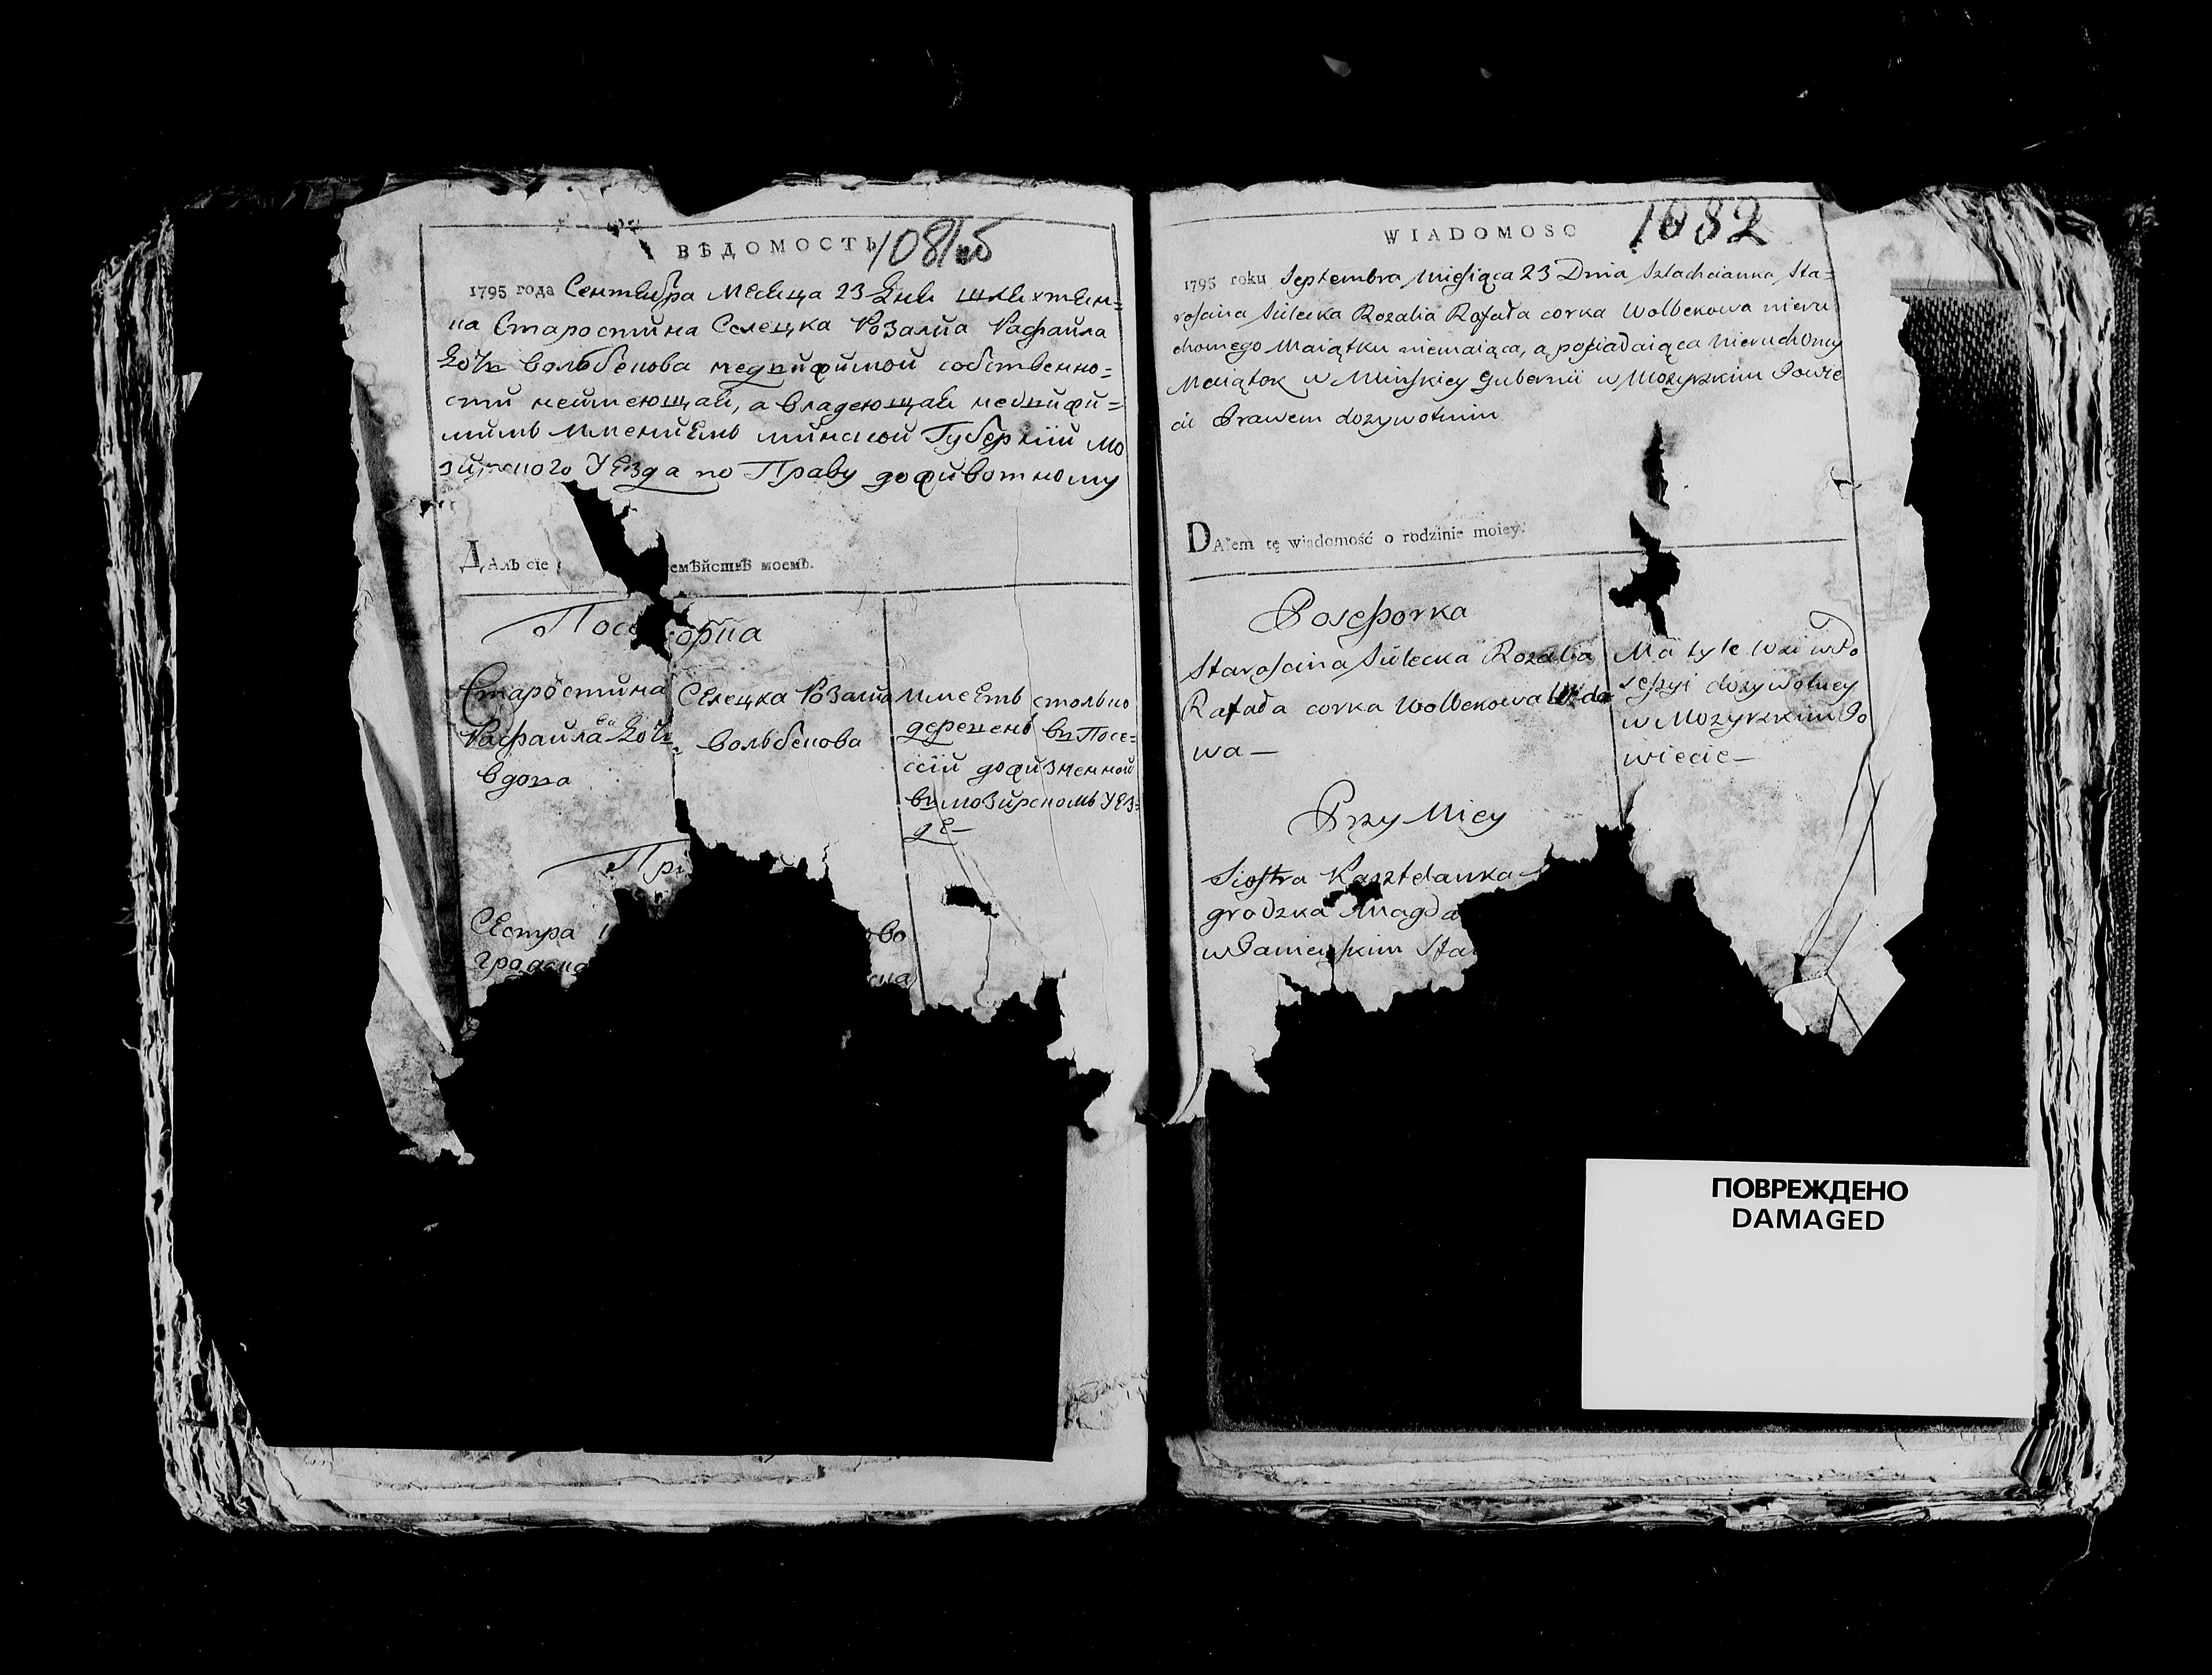 ВѢДОМОСТЬ 1081об
1795 года Сентября Месяца 23 Дня Шляхтян=
ка Старостина Селецка Розалiа Рафаила
Дочъ Вольбекова недвижимой собственно=
сти неимеющая, а владеющая недвижи=
мимъ имениемъ минской Губернiи Мо
зирского Уезда по Праву доживотному
Далъ сїе емѣйствѣ моемъ.
Посе орка
Старостина Селецка Розалiа
Рафаила Дочъ Вольбекова
ва
вдова
имеетъ столько
деревень въ Посе=
ссiи дожизненной
въ мозирскомъ Уез=
де —
При
Сестра во
градска ска
WIADOMOSC 1082
1795 roku Septembra Miesiąca 23 Dnia Szlachcianka Sta=
roscina Sielecka Rozalia Rafała corka Wolbekowa nieru
chomego Maiątku niemaiąca, a posiadaiąca Nieruchomy
Maiątek w Minskiey Gubernii w Mozyrskim Powie
cie Prawem dozywotnim
DAłem tę wiadomość o rodzinie moiey.
Posesorka
Staroscina Sielecka Rozalia
Rafała corka Wolbekowa Wdo
wa —
Ma tyle Wsi w Po
sessyi dozywotney
w Mozyrskim Po
wiecie —
Przy Niey
Siostra Kasztelanka
grodzka Magda
w Daniewskim Sta
ПОВРЕЖДЕНО
DAMAGED